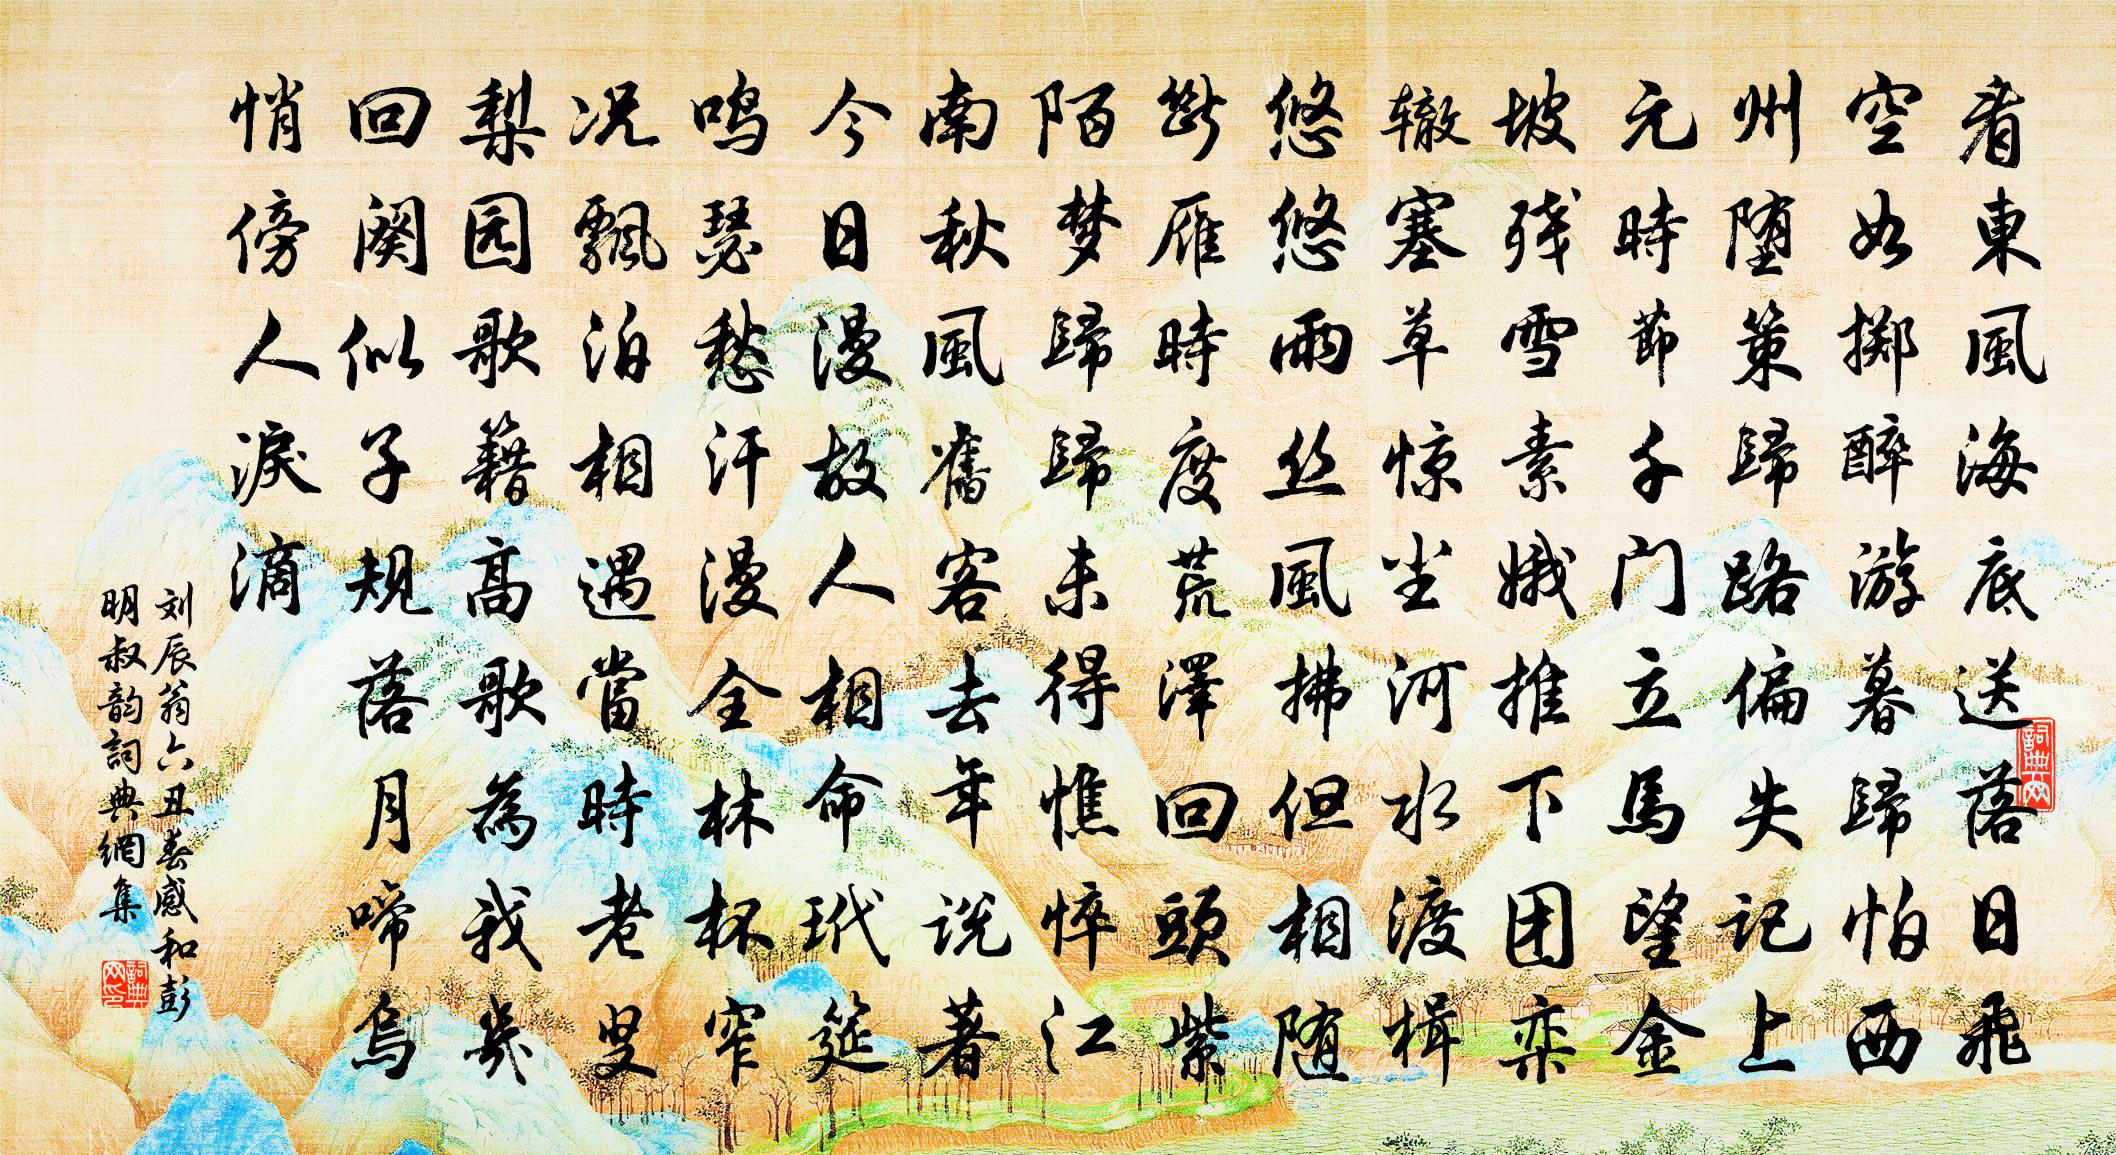 看東風海底送落日飛
空如掷醉游暮歸怕西
州堕策歸路偏失记上
元時節千门立馬望金
坡残雪素娥推下团栾
辙塞草惊尘河水渡楫
悠悠雨丝風拂但相随
断雁時度荒澤回頭紫
陌梦歸歸未得憔悴江
南秋風舊客去年说著
今日漫故人相命玳筵
鸣瑟愁汗漫全林杯窄
况飄泊相遇當時老叟
梨园歌籍高歌為我幾
回阕似子规落月啼烏
悄傍人淚滴
刘辰翁六丑春感和彭
明叔韵詞典網集
詞典网
詞典网印